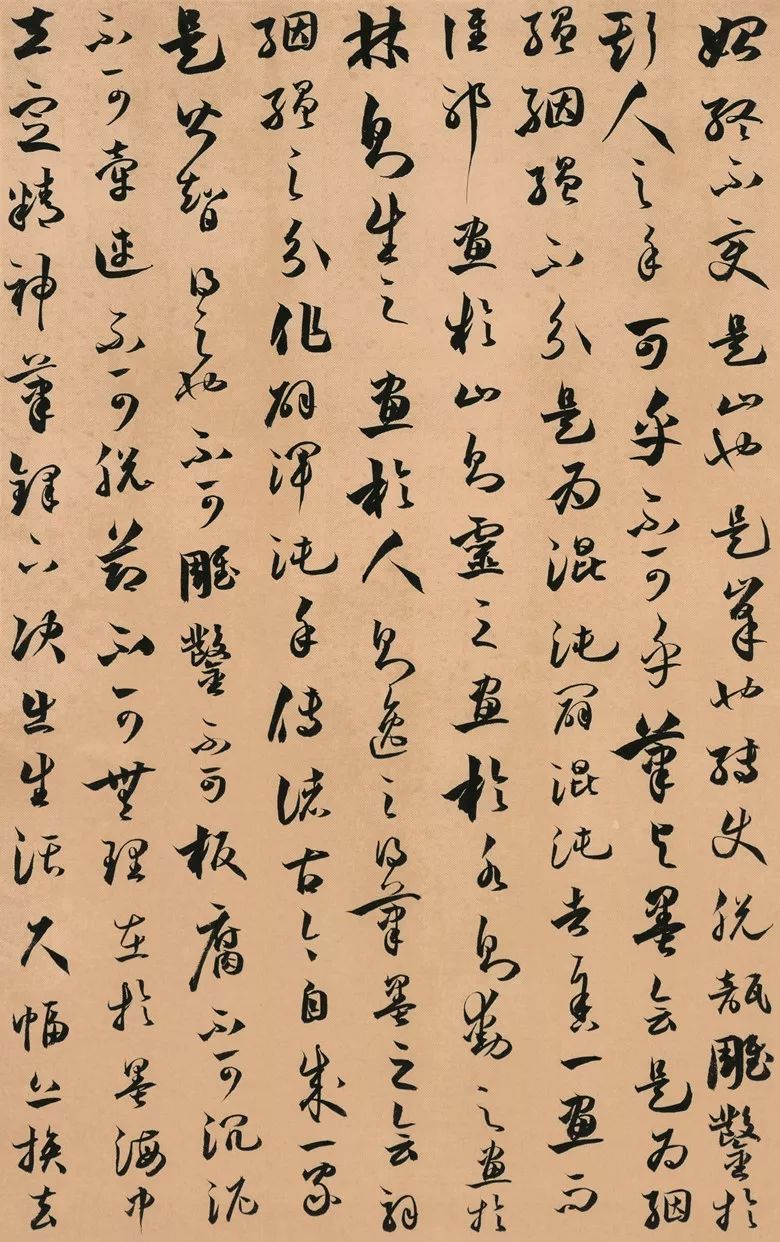 始終不變是山也是峯也轉使脫瓶雕鑿於
斯人之手可乎不可乎筆与墨會是為絪
縕絪縕不分是為混沌闢混沌者舍一畫而
誰耶畫於山則靈之畫於水則動之畫於
林則生之畫於人則逸之得筆墨之會解
絪縕之分作闢渾沌手傳諸古今自成一家
是皆智得之也不可雕鑿不可板腐不可沉泥
不可牽連不可脫節不可無理在於墨海中
立定精神筆鋒下決出生活尺幅上換去